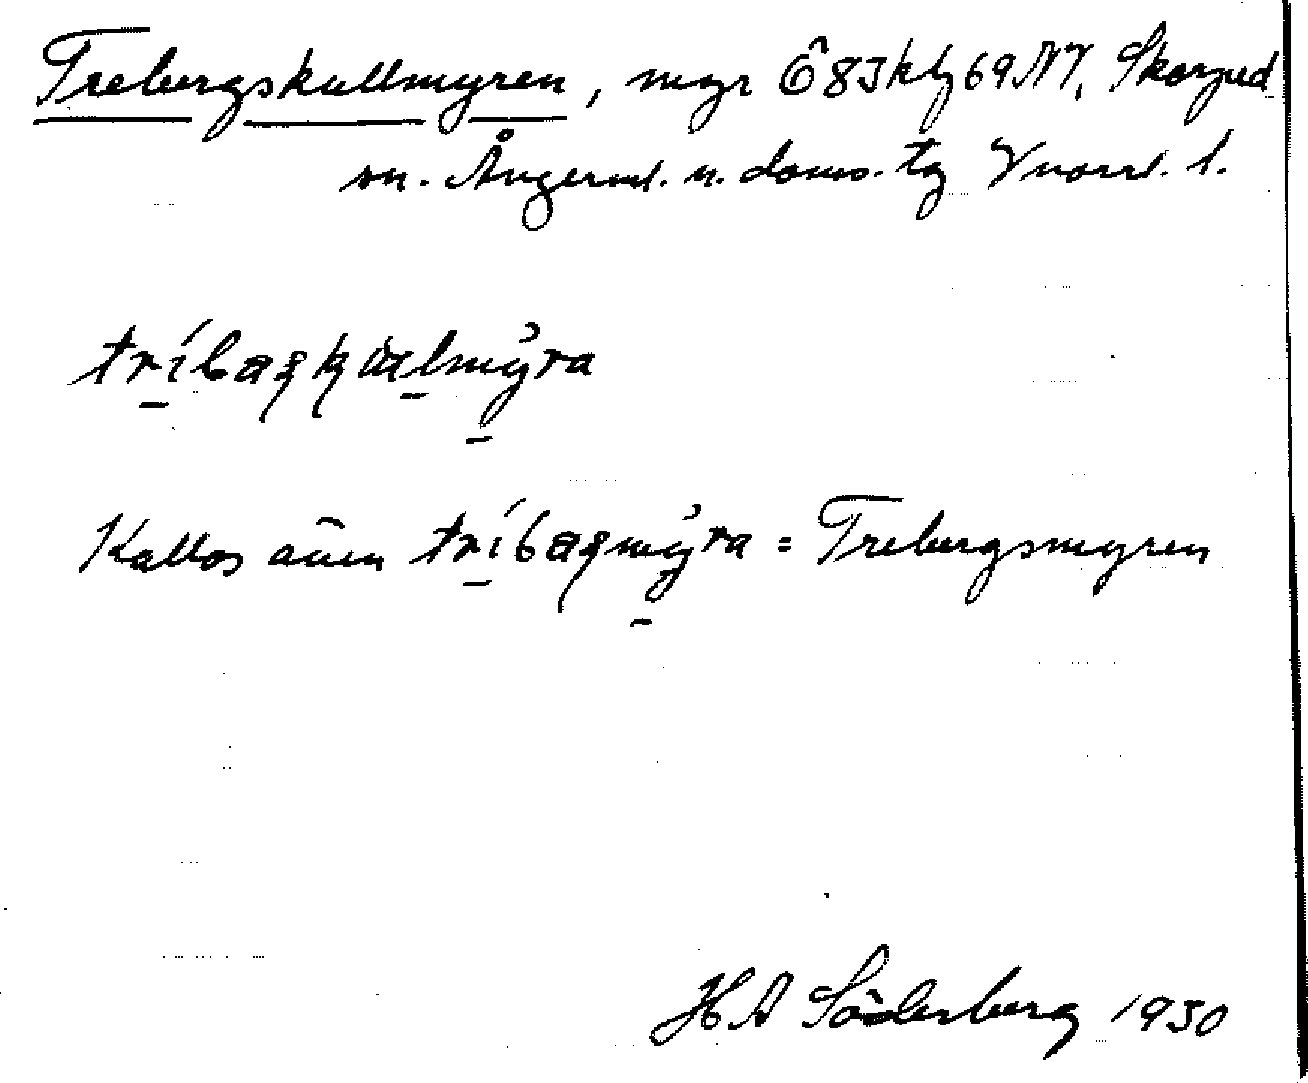 Trebergskullmyren, myr Ö 83 kbl 69 NV, Skorped
sn. Ångerml. n. doms. tg Vnorrl. l.
tríbaşkųlmýra
Kallas även tríbaşmýra = Trebergsmyren
H A Söderberg 1930